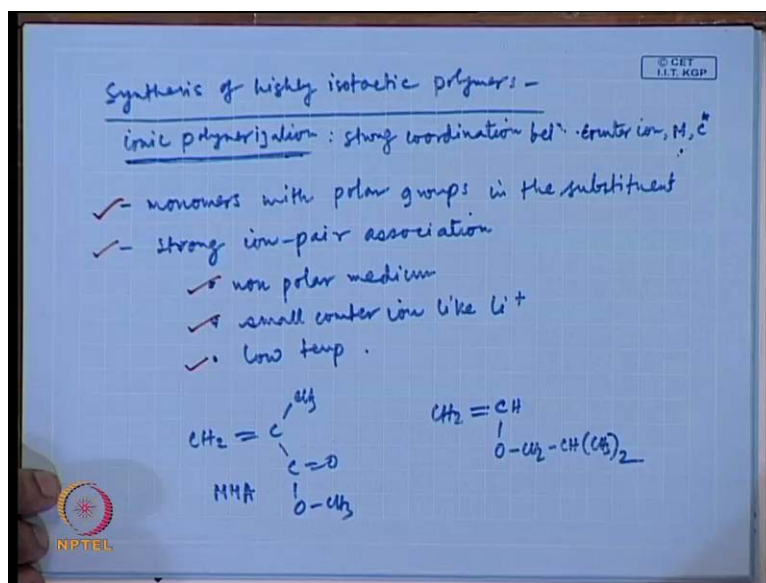 © CET
I.I.T. KGP
Synthesis of highly isotactic polymers -
ionic polymerization : strong coordination betn counter ion, M, C*
- monomers with polar groups in the substituent
- strong ion-pair association
• non polar medium
• small counter ion like Li+
• low temp.
CH2 = C
CH3
C = O
O-CH3
MMA
CH2 = CH
O-CH2-CH(CH3)2
NPTEL